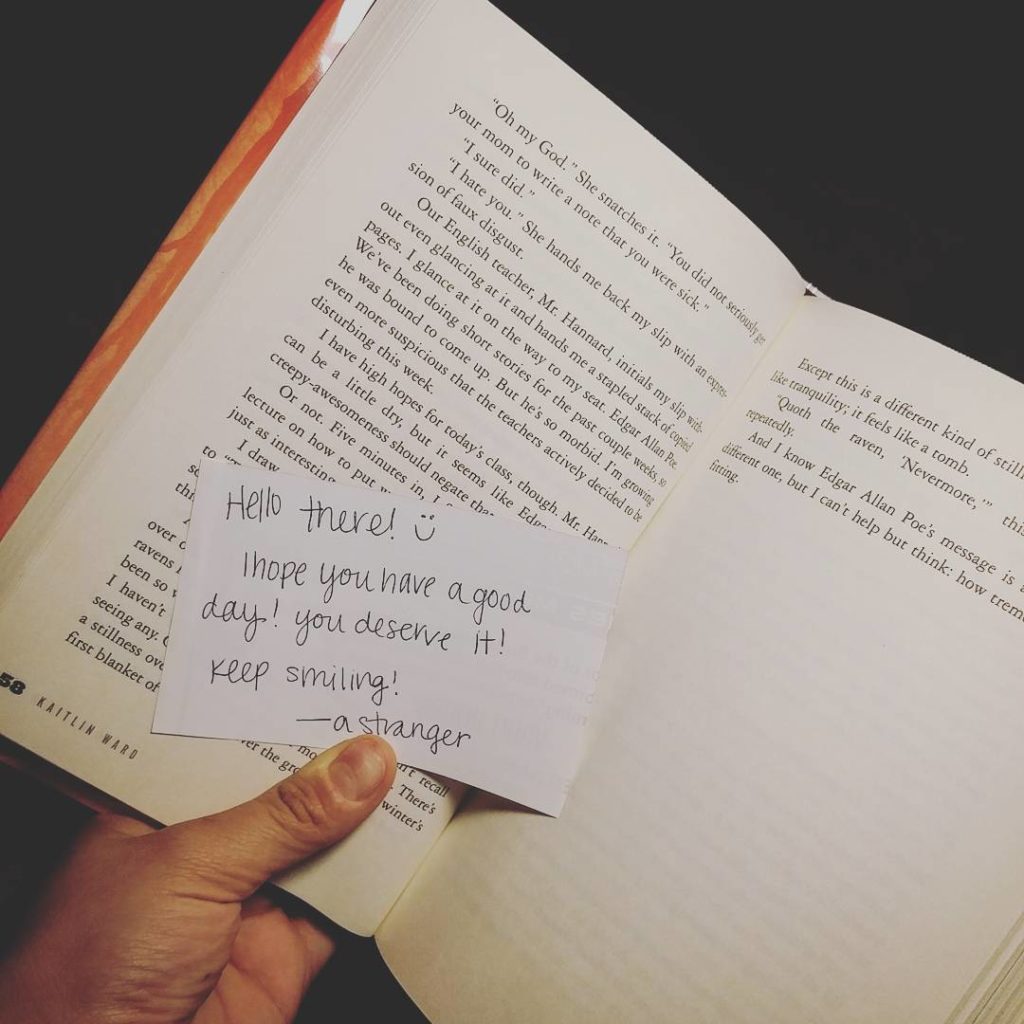 "Oh my God." She snatches it. "You did not seriously get
your mom to write a note that you were sick."
"I sure did."
"I hate you." She hands me back my slip with an expres-
sion of faux disgust.
Our English teacher, Mr. Hannard, initials my slip with-
out even glancing at it and hands me a stapled stack of copied
pages. I glance at it on the way to my seat. Edgar Allan Poe.
We've been doing short stories for the past couple weeks, so
he was bound to come up. But he's so morbid. I'm growing
even more suspicious that the teachers actively decided to be
disturbing this week.
I have high hopes for today's class, though. Mr. Hann
can be a little dry, but it seems like Edga
creepy-awesomeness should negate tha
Or not. Five minutes in, I
lecture on how to put
just as interesting
I draw
to
so
thi
over
ravens
been so
I haven't
seeing any.
a stillness ove
first blanket of
Hello there! :)
I hope you have a good
day! you deserve it!
keep smiling!
—a stranger
n't recall
ver the gro There's
winter's
58 KAITLIN WARD
Except this is a different kind of still
like tranquility; it feels like a tomb.
"Quoth the raven, 'Nevermore,'" this
repeatedly.
And I know Edgar Allan Poe's message is a
different one, but I can't help but think: how trem
fitting.